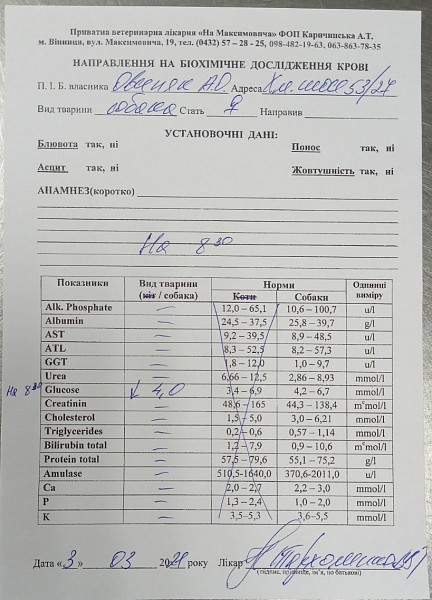 Приватна ветеринарна лікарня «На Максимовича» ФОП Каричинська А.Т.
м. Вінниця, вул. Максимовича, 19, тел. (0432) 57 – 28 - 25, 098-482-19-63, 063-863-78-35
НАПРАВЛЕННЯ НА БІОХІМІЧНЕ ДОСЛІДЖЕННЯ КРОВІ
П. І. Б. власника А.О. Адреса Хм. шосе 53/27
Вид тварини собака Стать ♀ Направив
УСТАНОВОЧНІ ДАНІ:
Блювота так, ні Понос так, ні
Асцит так, ні Жовтушність так, ні
АНАМНЕЗ(коротко)
На 8 30
Показники Вид тварини (кіт / собака) Норми Одиниці виміру
Коти Собаки
Alk. Phosphate — 12,0 – 65,1 10,6 – 100,7 u/l
Albumin — 24,5 - 37,5 25,8 – 39,7 g/l
AST — 9,2 – 39,5 8,9 – 48,5 u/l
ATL — 8,3 – 52,5 8,2 – 57,3 u/l
GGT — 1,8 – 12,0 1,0 – 9,7 u/l
Urea — 6,66 – 12,5 2,86 – 8,93 mmol/l
На 8 30 Glucose ↓ 4,0 3,4 – 6,9 4,2 – 6,7 mmol/l
Creatinin — 48,6 – 165 44,3 – 138,4 mcmol/l
Cholesterol — 1,5 – 5,0 3,0 – 6,21 mmol/l
Triglycerides — 0,2 – 0,6 0,57 – 1,14 mmol/l
Bilirubin total — 1,2 – 7,9 0,9 – 10,6 mcmol/l
Protein total — 57,5 – 79,6 55,1 – 75,2 g/l
Amulase — 510,5-1640,0 370,6-2011,0 u/l
Ca — 2,0 – 2,7 2,2 – 3,0 mmol/l
P — 1,3 – 2,4 1,0 – 2,0 mmol/l
K — 3,5–5,3 3,6–5,5 mmol/l
Дата «3» 03 2021 року Лікар
(підпис, прізвище, ім'я, по батькові)